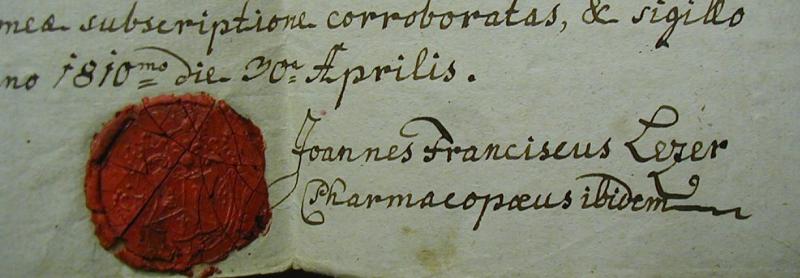 meæ subscriptione corroboratas, & sigillo
no 1810mo die 30a Aprilis.
Joannes Franciscus Lezer
Pharmacopœus ibidem